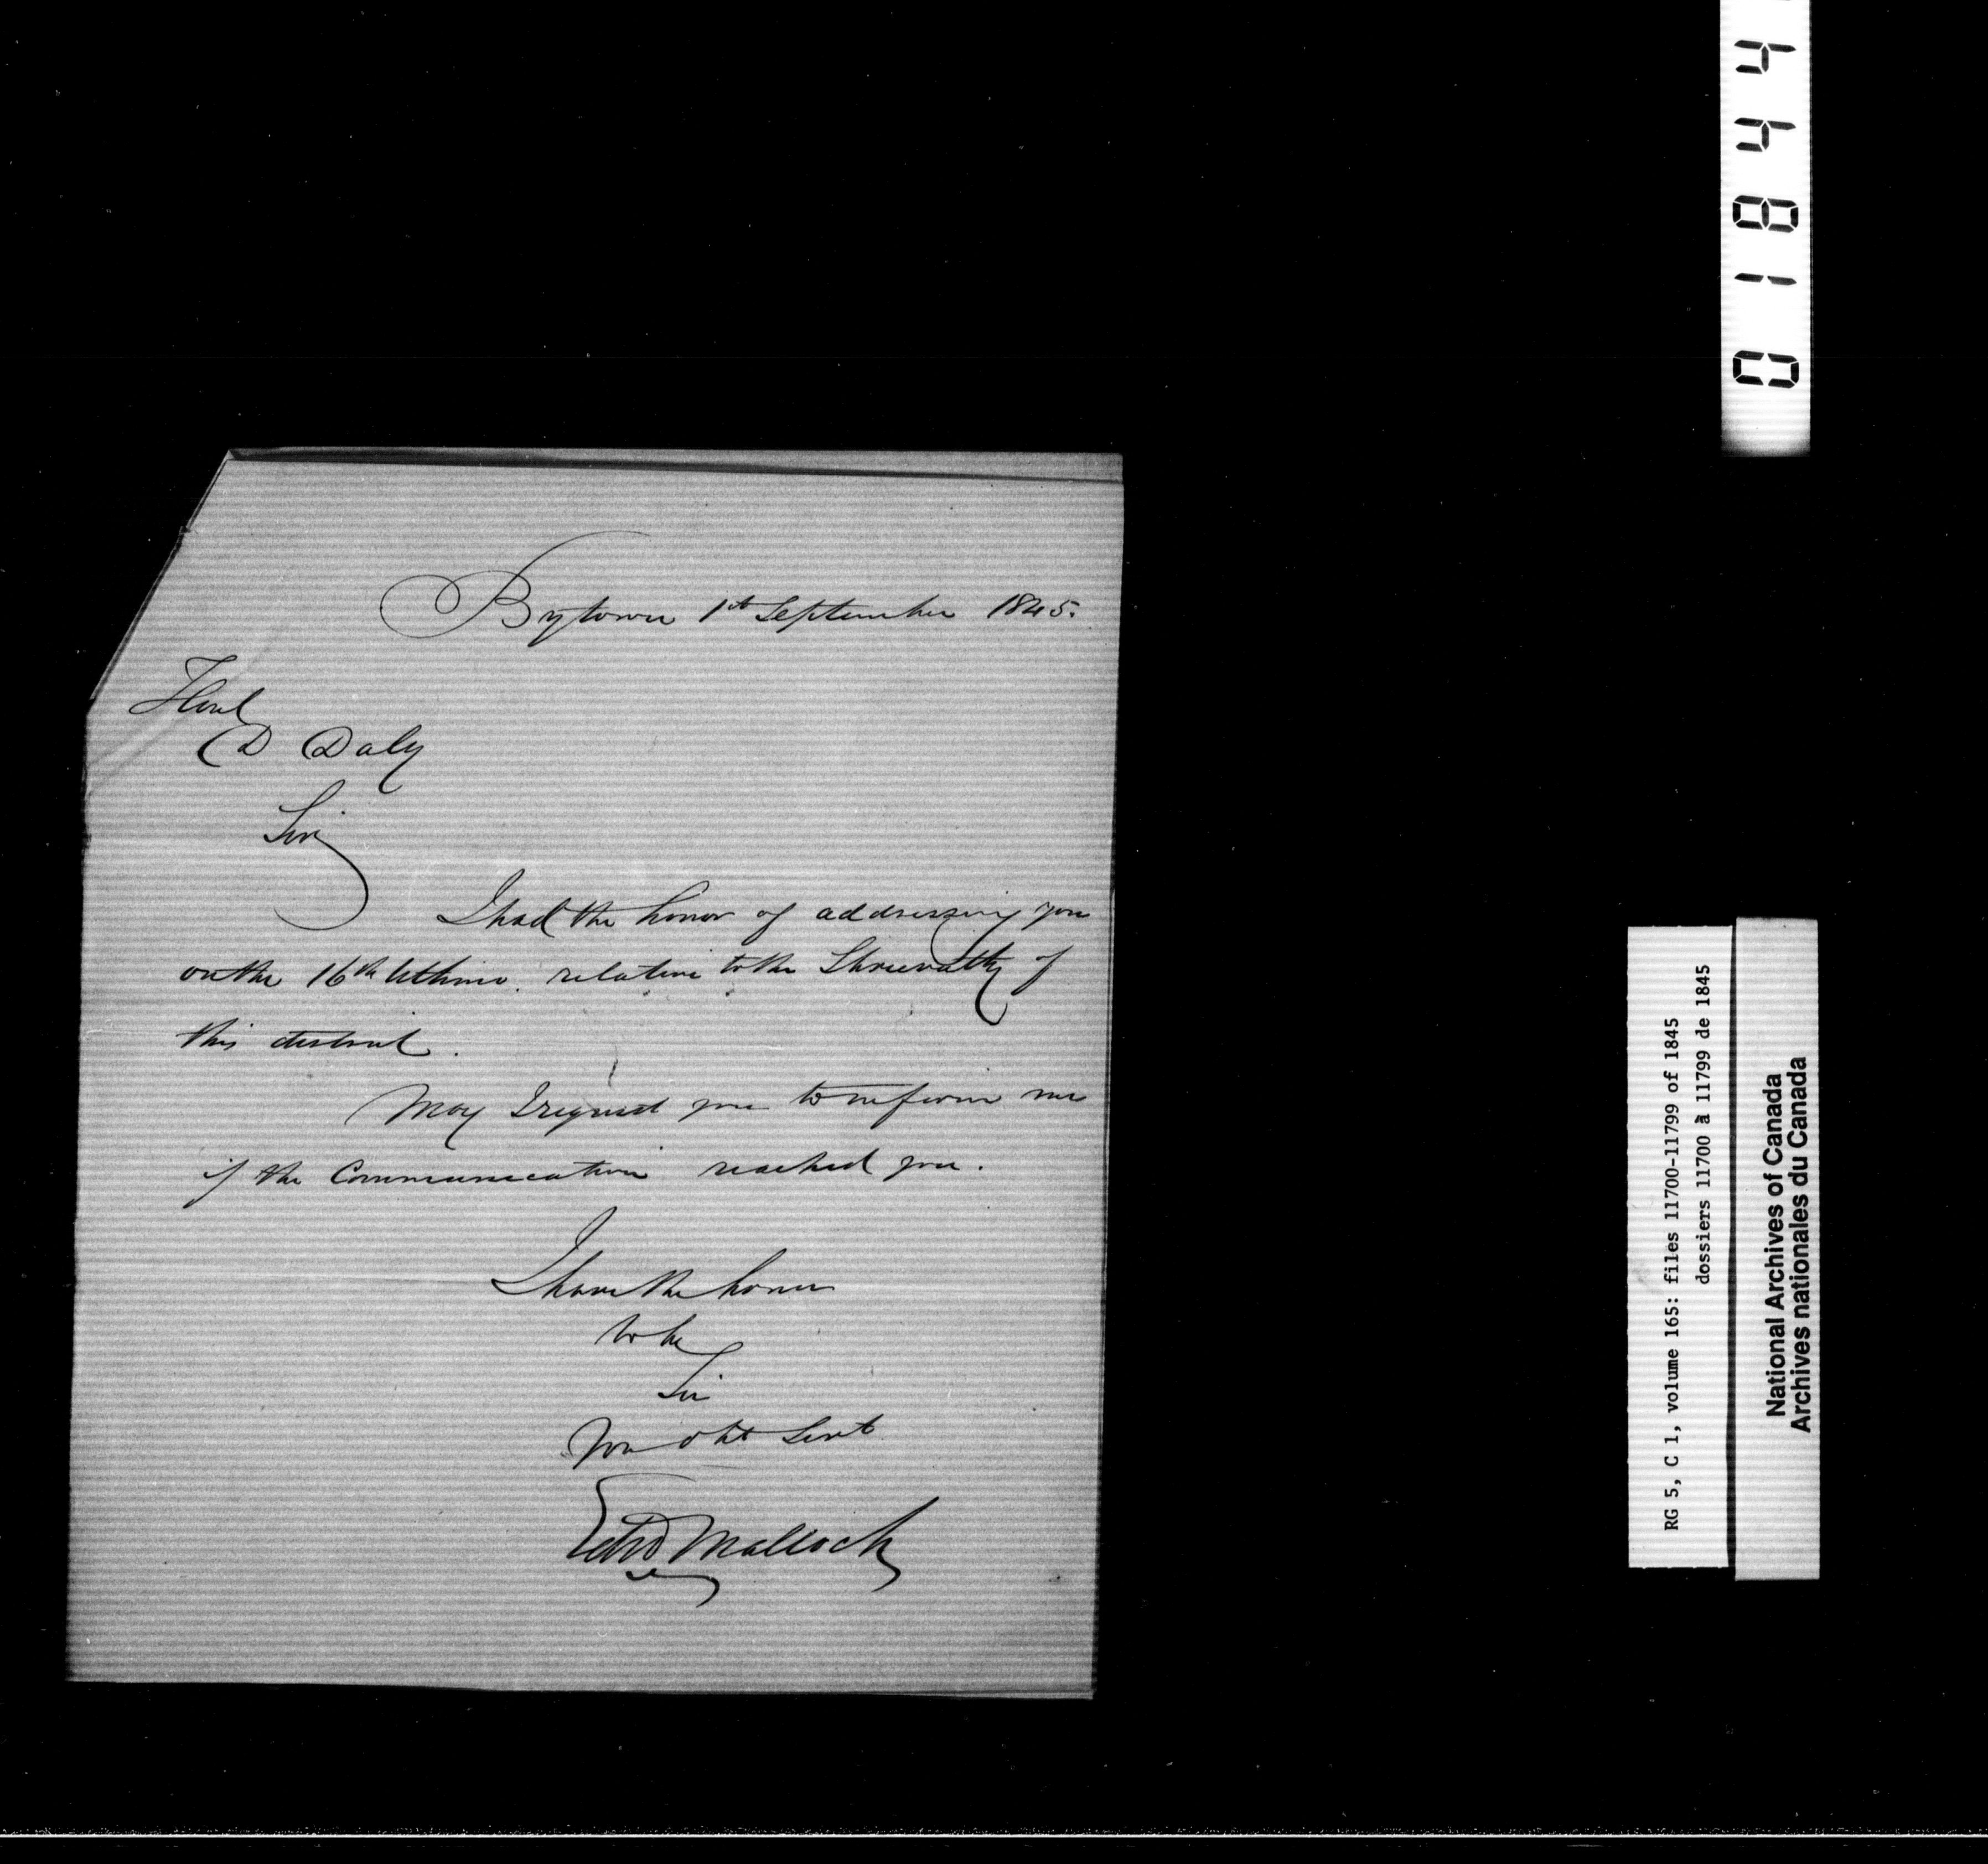 Bytown 1st September 1845.
Honl
D Daly
Sir
I had the honor of addressing you
on the 16th Ultimo. relative to the Shrievalty of
this district.
May I request you to inform me
if the Communication reached you.
I have the honor
to be
Sir
Your Obt Servt
Edwd Malloch
01844
RG 5, C 1, volume 165: files 11700-11799 of 1845
dossiers 11700 à 11799 de 1845
National Archives of Canada
Archives nationales du Canada